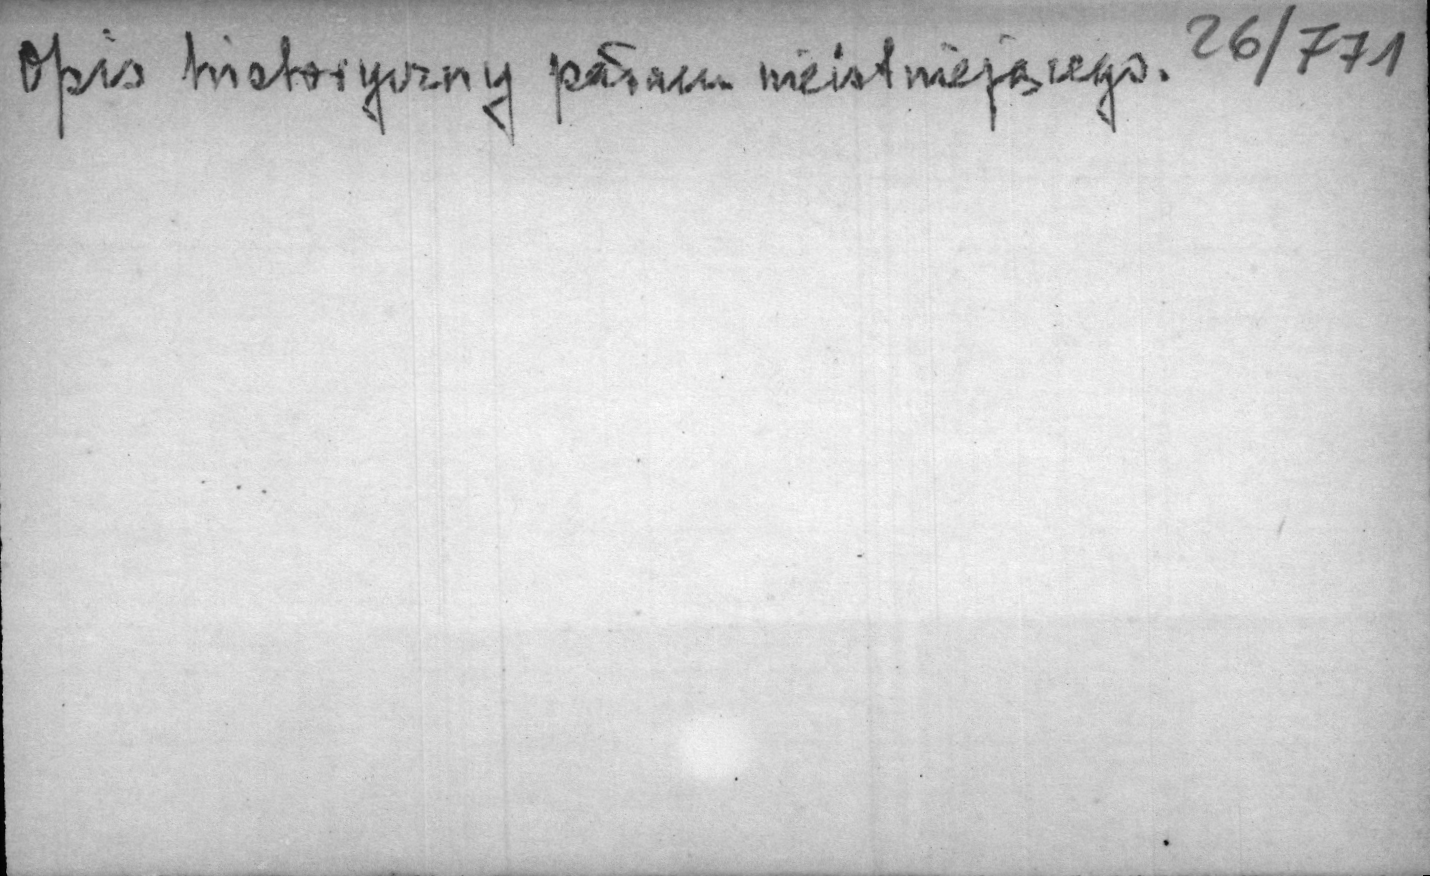 Opis historyczny pałacu nieistniejącego. 26/771